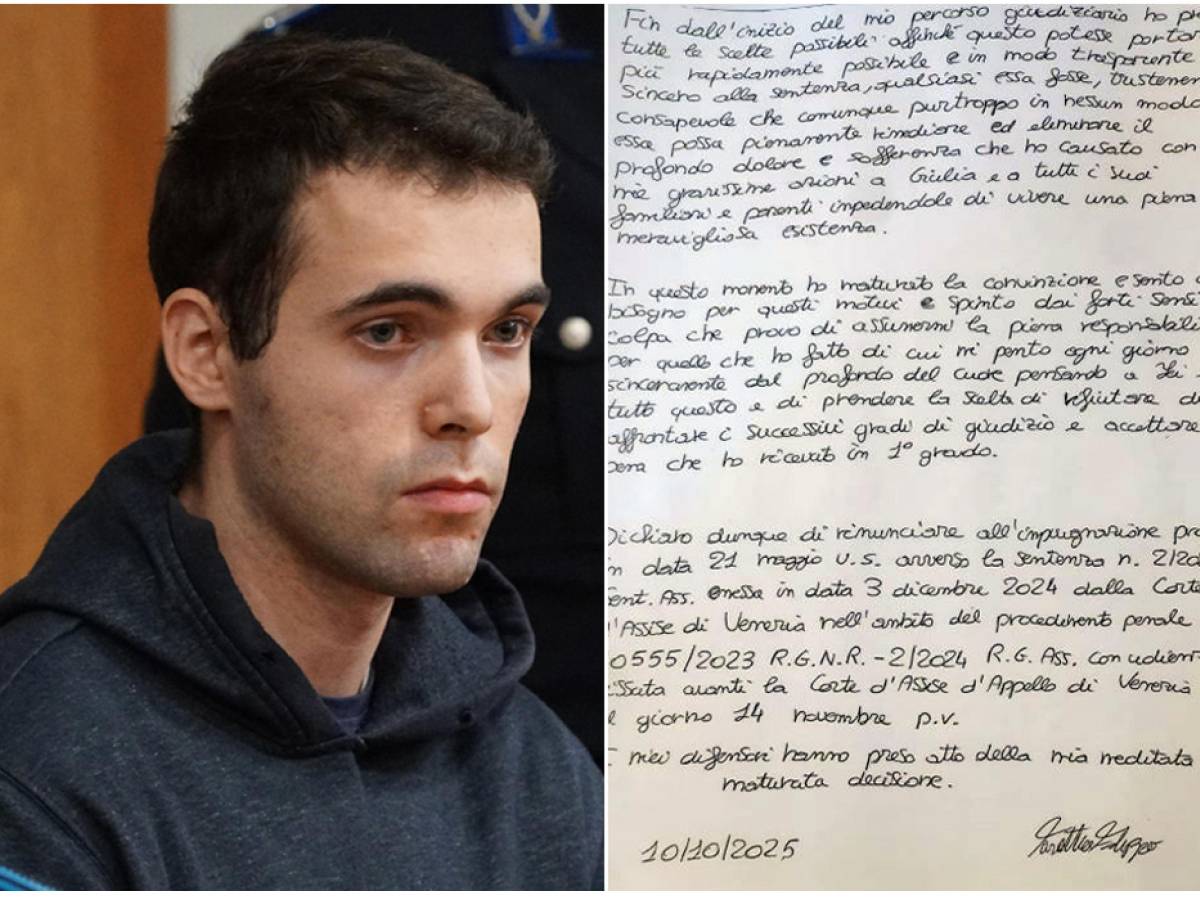 Fin dall'inizio del mio percorso giudiziario ho pr
tutte le scelte possibili affinché questo potesse portar
più rapidamente possibile e in modo trasparente
sincero alla sentenza, qualsiasi essa fosse, tristemen
consapevole che comunque purtroppo in nessun modo
essa possa pienamente rimediare ed eliminare il
profondo dolore e sofferenza che ho causato con
mie gravissime azioni a Giulia e a tutti i suoi
familiari e parenti impedendole di vivere una piena
meravigliosa esistenza.
In questo momento ho maturato la convinzione e sento
bisogno per questi motivi e spinto dai forti sensi
colpa che provo di assumermi la piena responsabili
per quello che ho fatto di cui mi pento ogni giorno
sinceramente dal profondo del cuore pensando a
tutto questo e di prendere la scelta di rifiutare di
affrontare i successivi gradi di giudizio e accettare
pena che ho ricevuto in 1° grado.
Dichiaro dunque di rinunciare all'impugnazione pro
in data 21 maggio u.s. avverso la sentenza n. 2/20
ent. Ass. emessa in data 3 dicembre 2024 dalla Corte
d'Assise di Venezia nell'ambito del procedimento penale
0555/2023 R.G.N.R. - 2/2024 R.G. Ass. con udien
issata avanti la Corte d'Assise d'Appello di Venezia
l giorno 14 novembre p.v.
I miei difensori hanno preso atto della mia meditata
maturata decisione.
10/10/2025